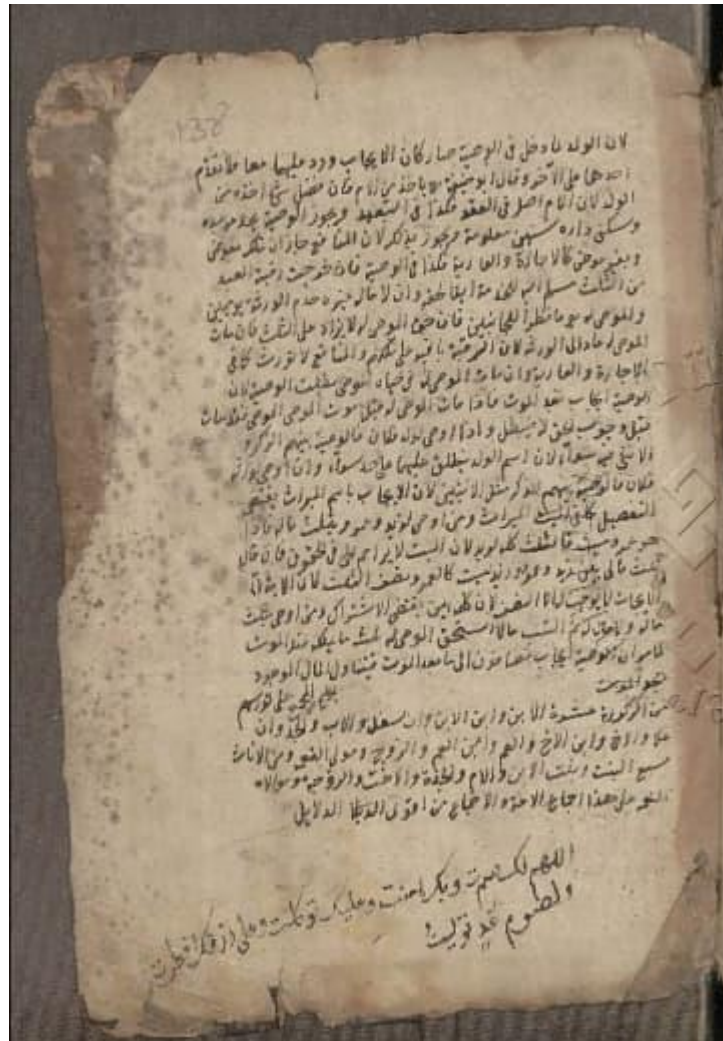 ١٣٨
لان الولد لما دخل فى الوصية صار كان الايجاب ورد عليهما معا فلا يقدم
احدهما على الآخر وقال ابو حنيفة يأخذ من الام فان فضل شئ اخذه من
الولد لان الام اصل فى العقد فكذا فى التنفيذ ويجوز الوصية بخدمة عبده
وسكنى داره سنين معلومة ويجوز بذلك لان المنافع جاز ان تملك بعوض
وبغير عوض كالاجارة والعارية فكذا فى الوصية فان خرجت رقبة العبد
من الثلث سلم اليه للخدمة ايفاء لحقه وان لا مال غيره خدم الورثة يومين
والموصى له يوما نظرا للجانبين فان حق الموصى له لا يزاد على الثلث فان مات
الموصى له عاد الى الورثة لان الرقبة باقية على ملكهم والمنافع لا تورث كما فى
الاجارة والعارية وان مات الموصى له فى حياة الموصى بطلت الوصية لان
الوصية ايجاب بعد الموت فاذا مات الموصى له قبل موت الموصى
قبل وجوب الحق له فيبطل واذا اوصى لولد فلان فالوصية بينهم الذكر و
الانثى فيه سواء لان اسم الولد ينطلق عليهما على حد سواء وان اوصى لورثة
فلان فالوصية بينهم للذكر مثل الانثيين لان الايجاب باسم الميراث يقتضى
التفصيل كما فى الميراث ومن اوصى لزيد وعمرو بثلث ماله فاذا
هو عمرو ميت فالثلث كله لزيد لان الميت لا يزاحم الحى فى الحقوق فان قال
ثلث مالى بين زيد وعمرو وزيد ميت كان لعمرو نصف الثلث لان
الايجاب لا يوجب له الا النصف لان كلمة بين تقتضى الاشتراك ومن اوصى بثلث
ماله ولا مال له ثم اكتسب مالا استحق الموصى له ثلث ما يملكه عند الموت
لما مر ان الوصية ايجاب مضاف الى ما بعد الموت فيتناول المال الموجود
عند الموت
المجمع على توريثهم
من الذكور عشرة الابن وابن الابن وان سفل والاب والجد وان
علا والاخ وابن الاخ والعم وابن العم والزوج ومولى العتق ومن الاناث
سبع البنت وبنت الابن والام والجدة والاخت والزوجة ومولاة
العتق على هذا اجماع الامة والاجماع من اقوى الدلايل
اللهم لك صمت وبك امنت وعليك توكلت وعلى رزقك افطرت
ولصوم غد نويت